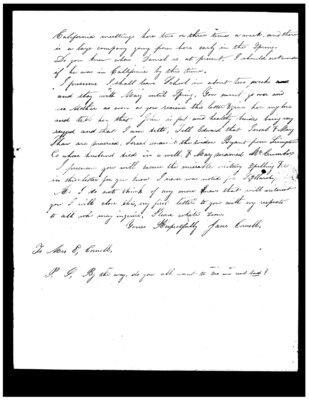 California meetings here two or three times a week and there
is a large company going from here early in the Spring.
Do you know where is at present. I should not wonder
if he was in California by this time.
I presume I shall leave School in about two weeks and
and stay with Mary until Spring. You must go over and
see Mother as soon as you receive this letter & give her my love
and tell her that John is fat and healthy besides being very
ragged and that I am ditto, Tell Edward that & Mary
are married, to the widow Bryant from
Co whose husband died in a well & Mary married Mr
I presume you will excuse the miserable writing spelling &c
in this letter for you know I never was noted for
As I do not think of any more that will interest
you I will close this, my first letter to you with my respects
to all who may inquire. Please write soon
Yours Respectfully Jane
To Mrs E,
P. S. By the way, do you all want to see us real bad?